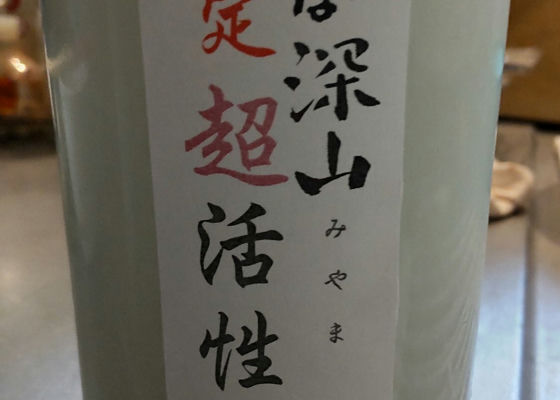 ほ深山
みやま
定超活性